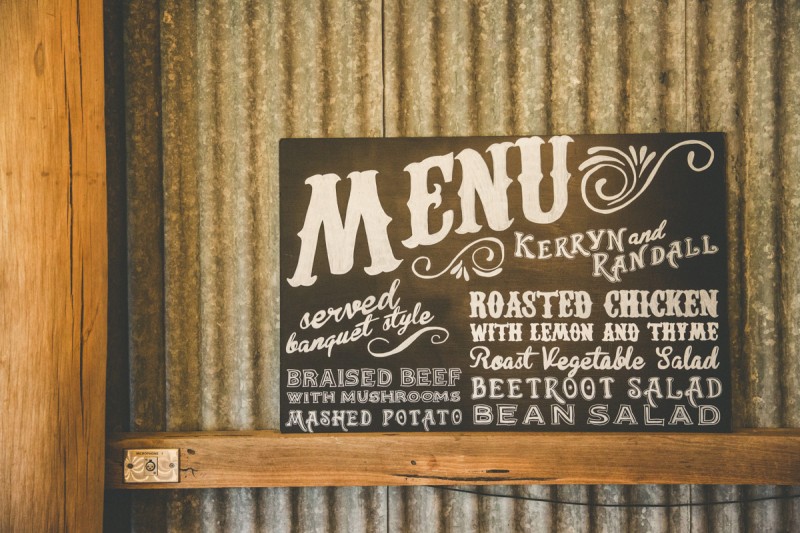 MENU
KERRYN and
RANDALL
served
banquet style
BRAISED BEEF
WITH MUSHROOMS
MASHED POTATO
ROASTED CHICKEN
WITH LEMON AND THYME
Roast Vegetable Salad
BEETROOT SALAD
BEAN SALAD